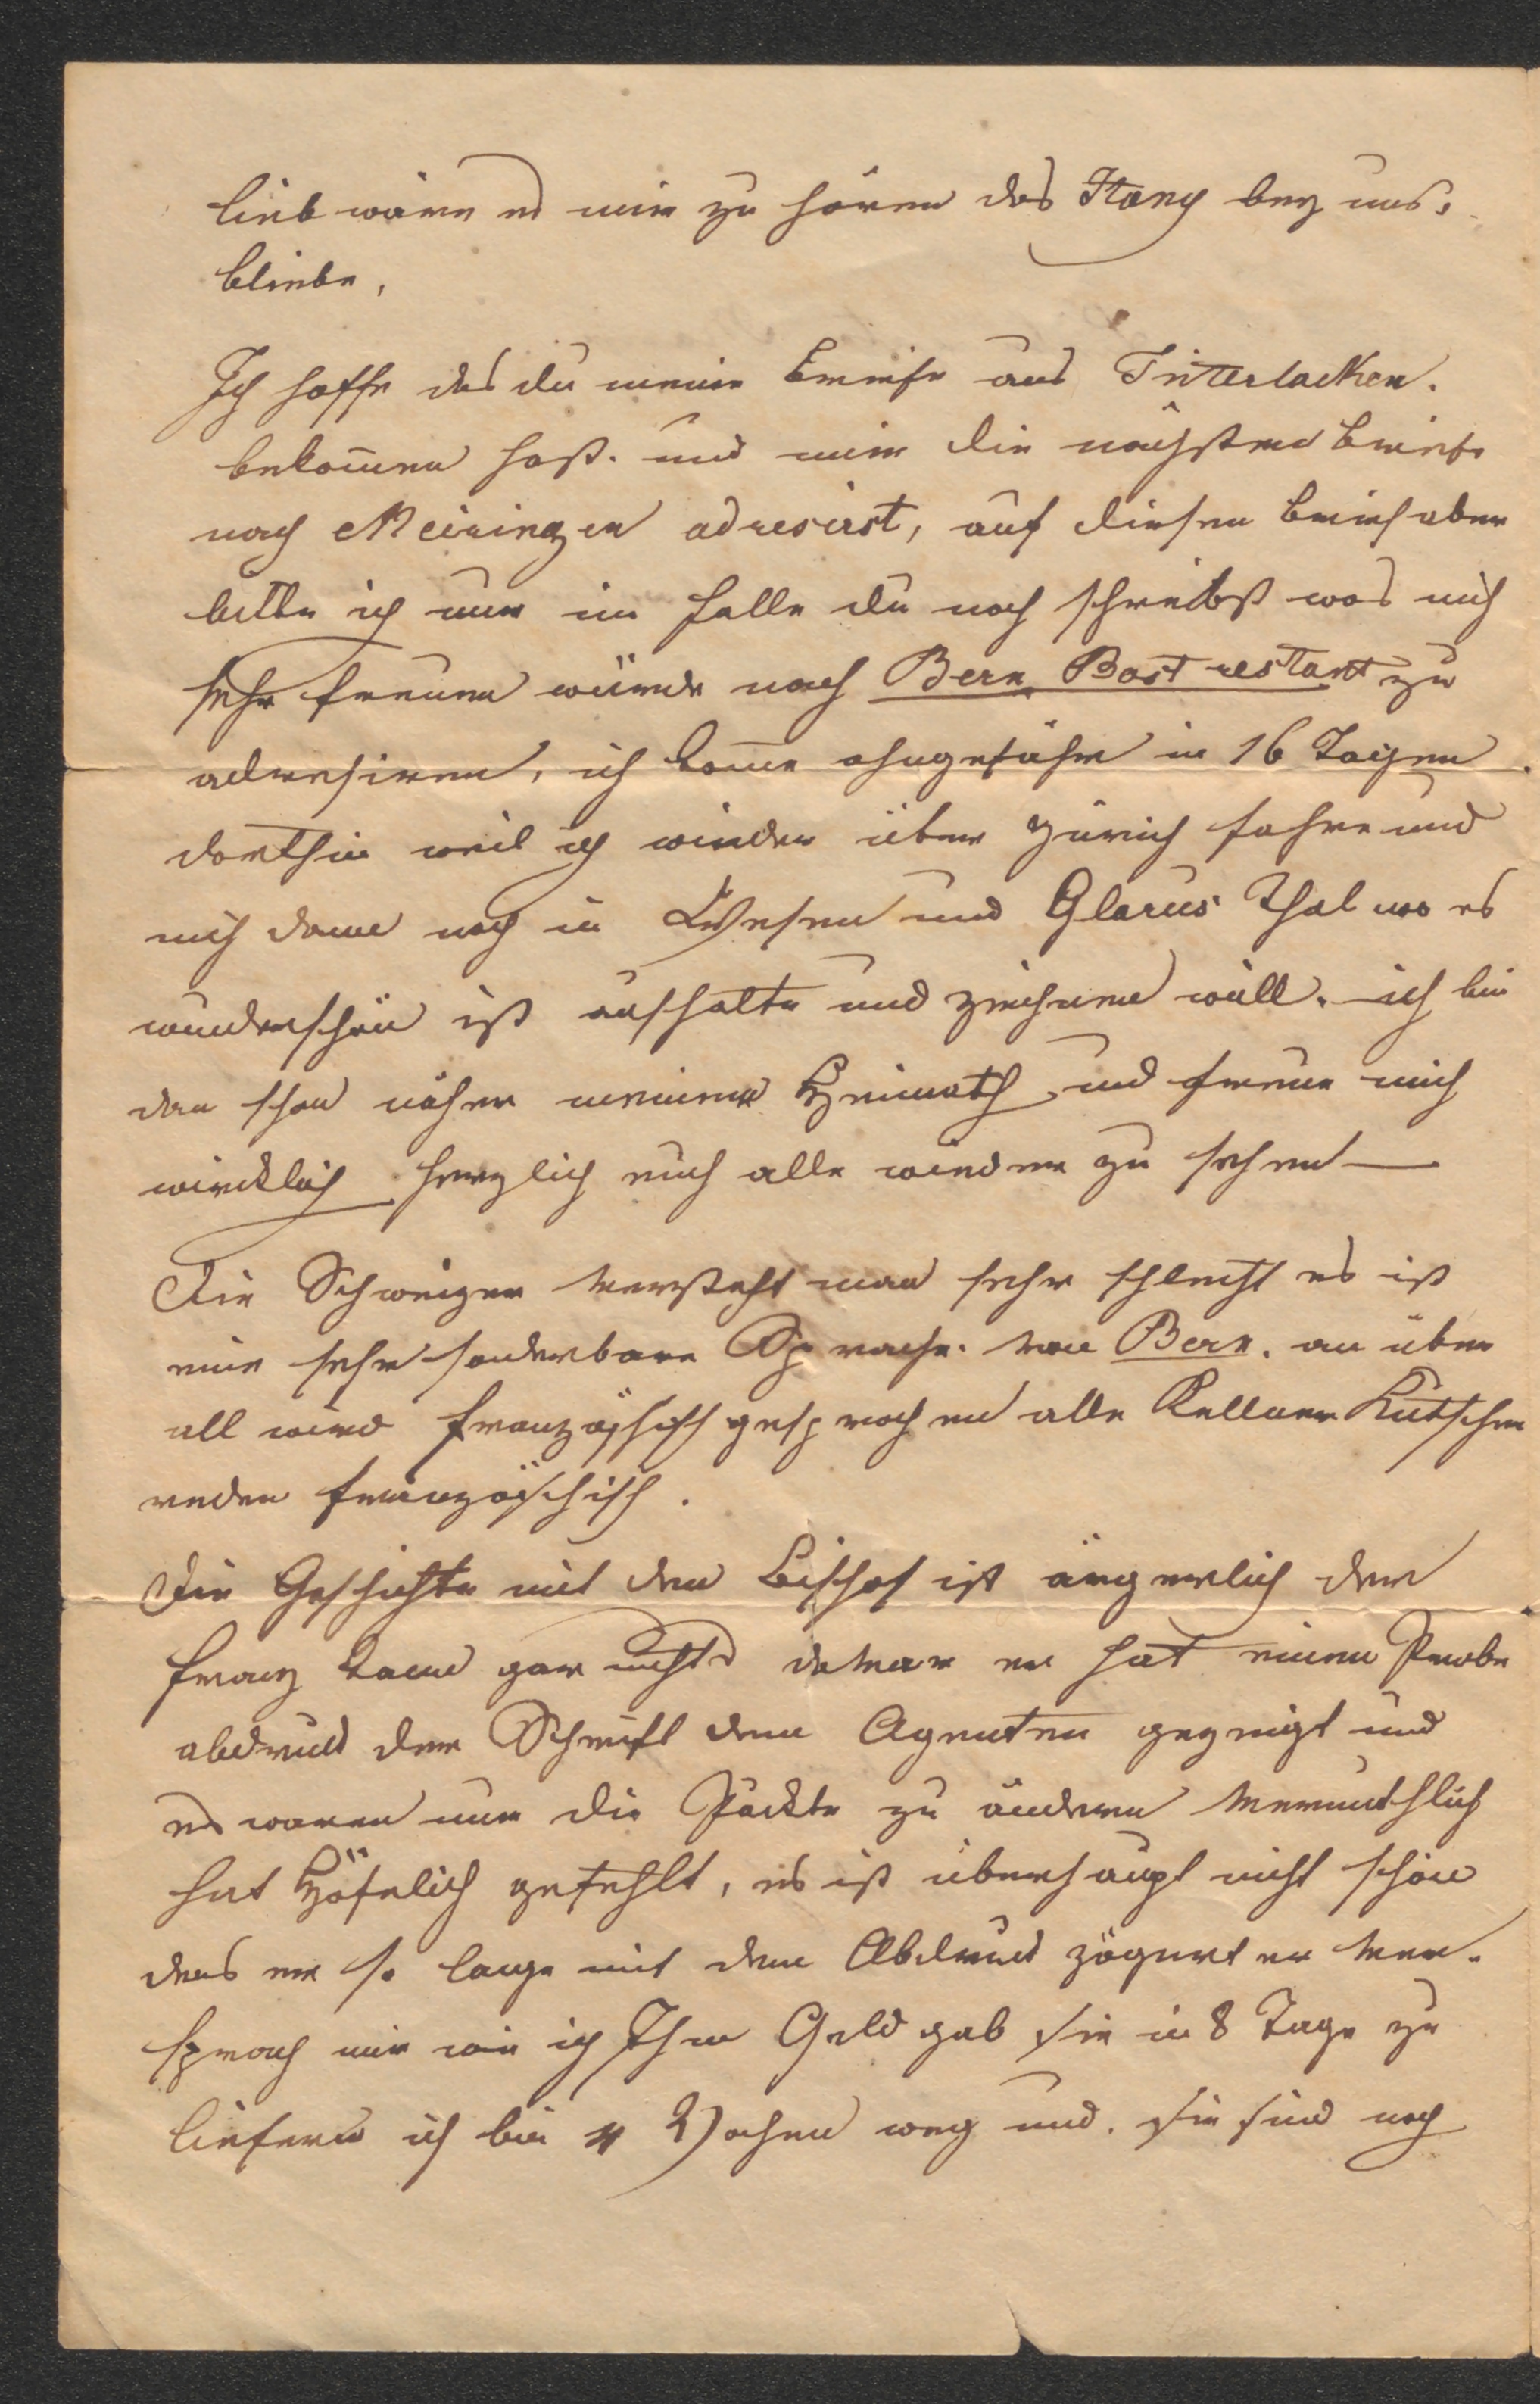 lieb wäre es mir zu hören das Stany bey uns
bliebe,
Ich hoffe das du meine Briefe aus Interlacken.
bekom̅en hast. und mir die nächsten Briefe
nach Meiringen adresirst, auf diesen Brief aber
bitte ich nur im Falle du noch schreibst was mich
sehr freuen würde nach Bern Post restant zu
adresiren, ich kom̅e ohngefähr in 16 Tagen
dorthin weil ich wieder über Zürich fahre und
mich dann noch in Wesen und Glarus Thal wo es
wunderschön ist aufhalte und zeichnen will. ich bin
dan schon näher meiner Heimath und freue mich
wircklich herzlich euch alle wieder zu sehen —
Die Schweizer versteht man sehr schlecht es ist
eine sehr sonderbare Sprache. von Bern. an über
all wird französisch gesprochen alle Kellner Kutscher
reden französchisch.
Die Geschichte mit den Bischof ist ärgerlich der
Franz kann gar nichts davor er hat einen Probe
abdruck der Schrift dem Agenten gezeigt und
es waren nur die Puckte zu änderen vermuthlich
hat Höfelich gefehlt, es ist überhaupt nicht schön
das er so lange mit dem Abdruck zögert er ver-
sprach mir wie ich Ihm Geld gab sie in 8 Tage zu
liefern ich bin 4 Wochen weg und. sie sind noch